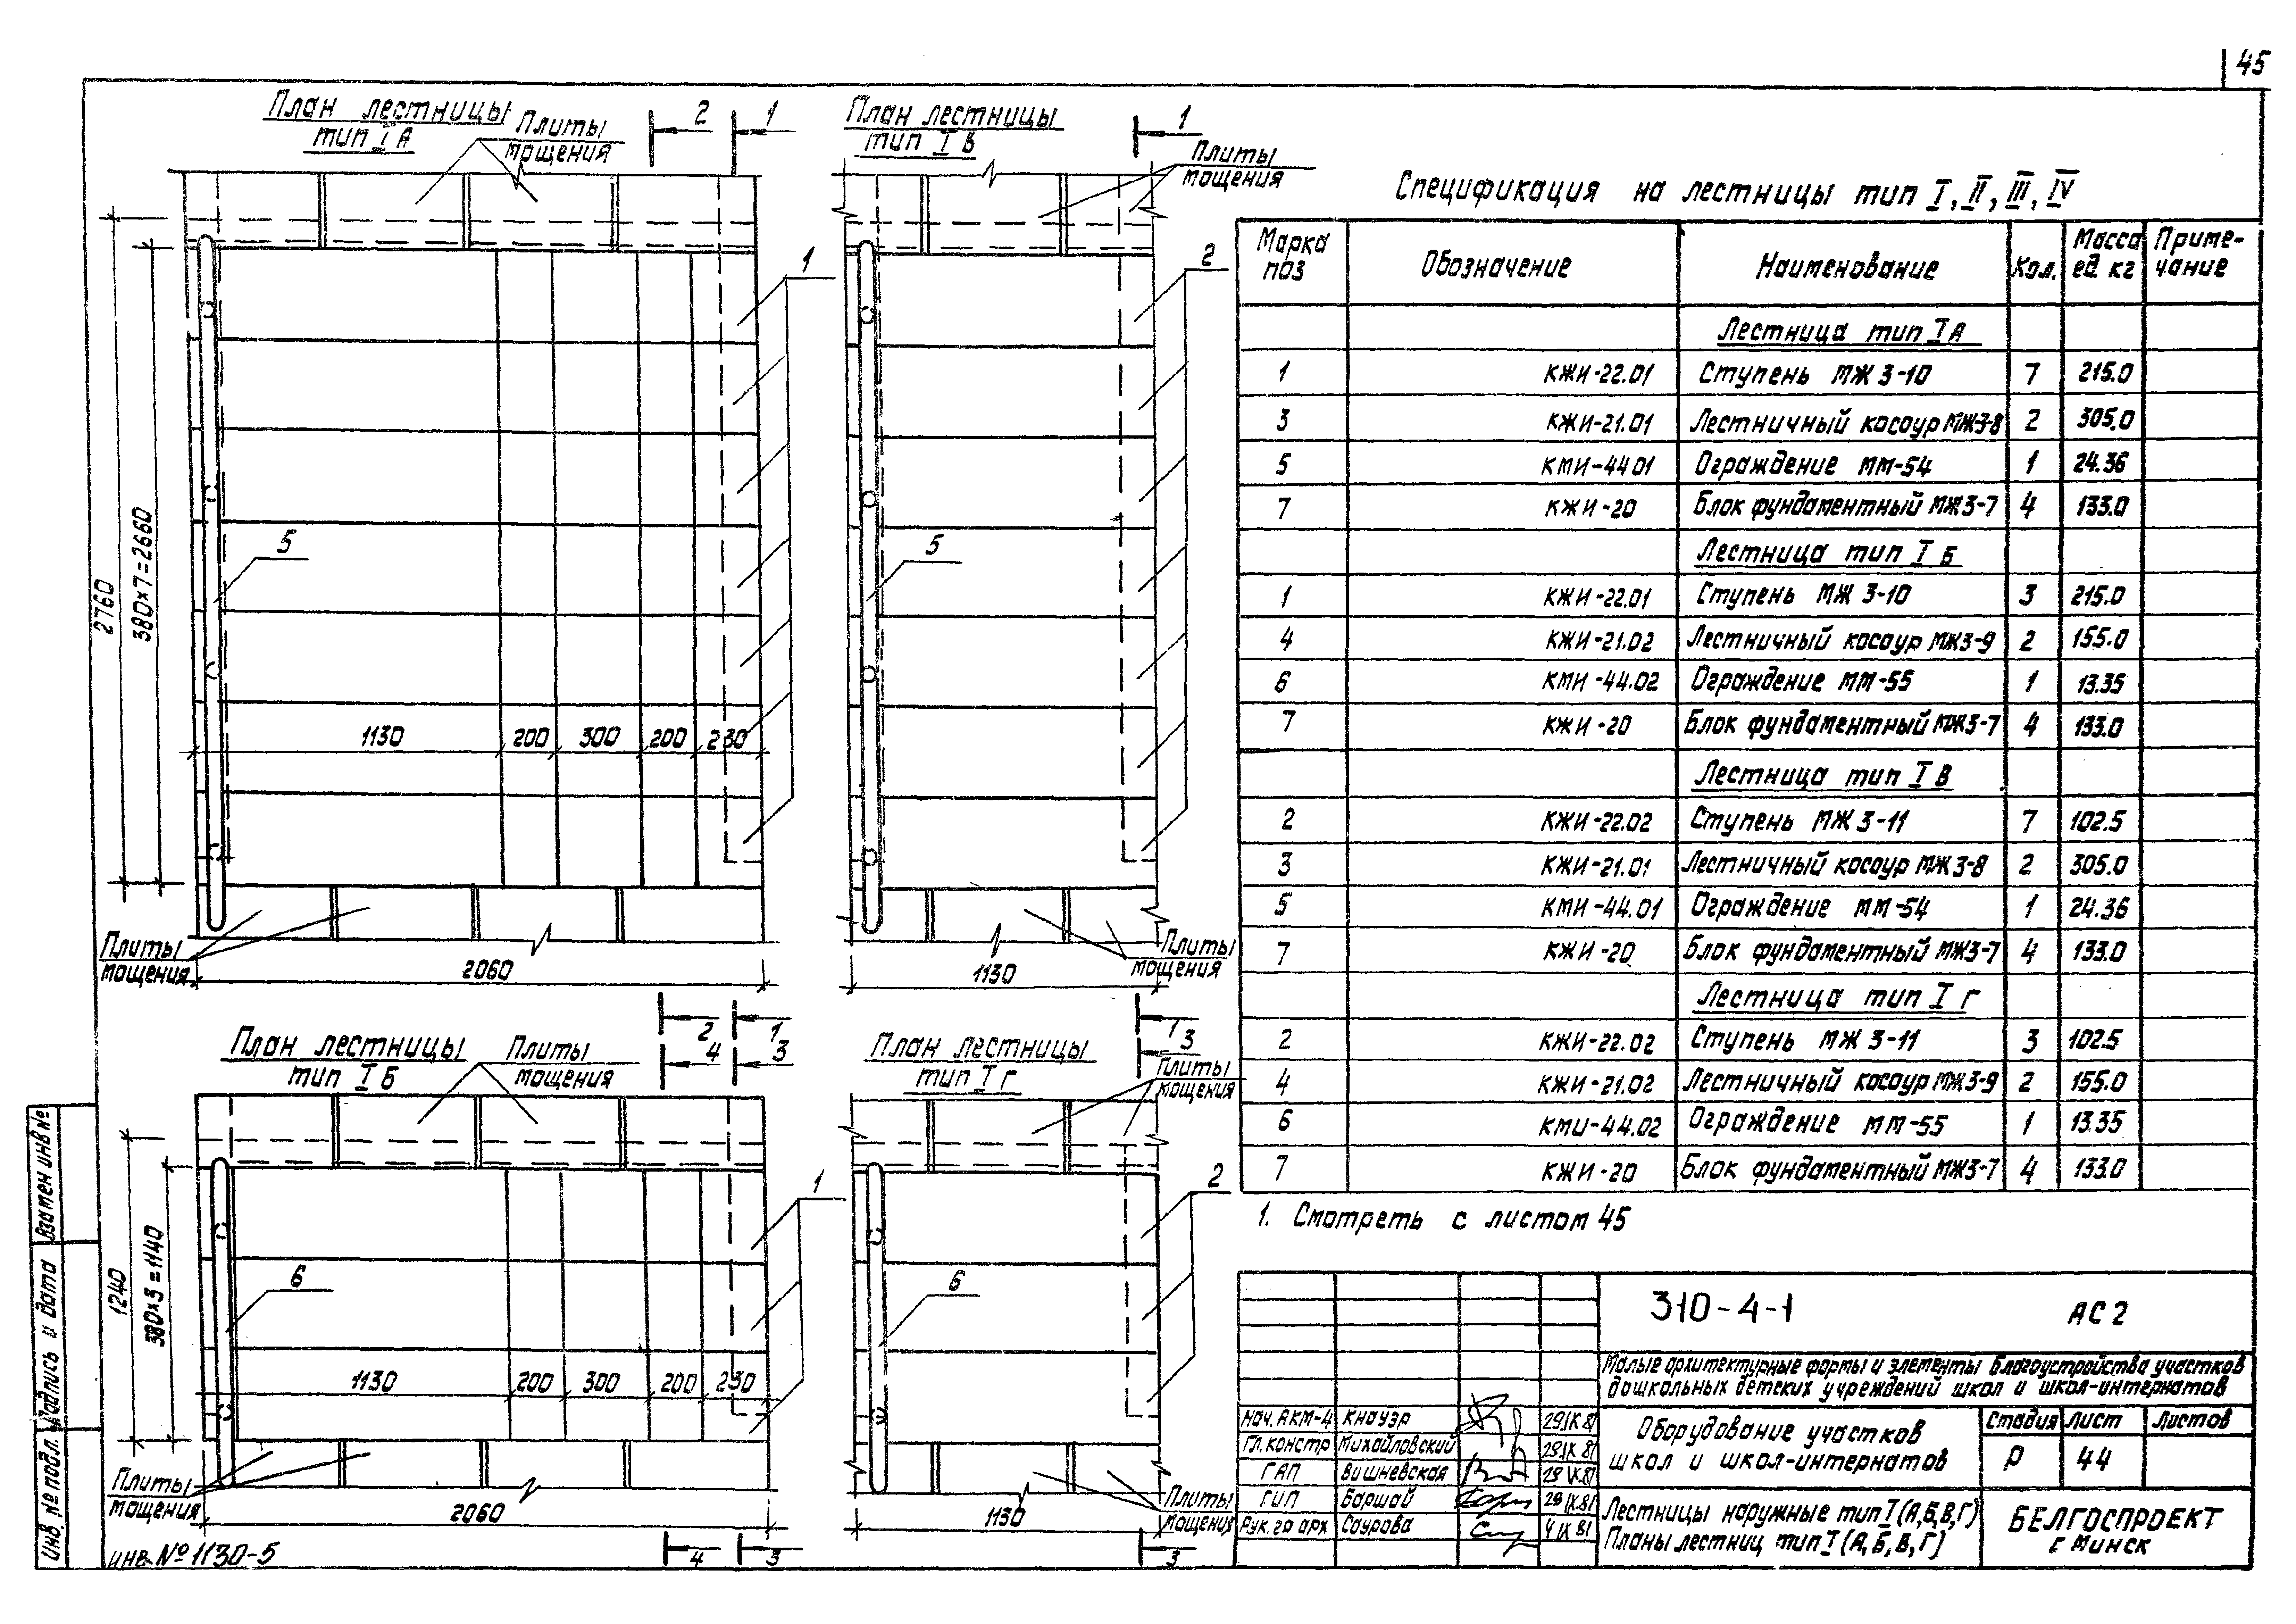 45
План лестницы
тип I А
Плиты
мощения
2
1
План лестницы
тип I В
1
Плиты
мощения
1
2
5
5
2760
380×7=2660
1130 200 300 200 230
Плиты
мощения
2060
Плиты
мощения
1130
2
1
1
План лестницы
тип I Б
Плиты
мощения
4
3
План лестницы
тип I Г
3
Плиты
мощения
1
2
6
6
1240
380×3=1140
1130 200 300 200 230
Плиты
мощения
2060
Плиты
мощения
1130
4
3
3
инв. № 1130-5
Взамен инв №
Подпись и дата
Инв № подл.
Спецификация на лестницы тип I, II, III, IV
Марка поз Обозначение Наименование Кол. Масса ед кг Примечание
Лестница тип I А
1 КЖИ-22.01 Ступень МЖ 3-10 7 215.0
3 КЖИ-21.01 Лестничный косоур МЖ3-8 2 305.0
5 КМИ-4401 Ограждение ММ-54 1 24.36
7 КЖИ-20 Блок фундаментный МЖ3-7 4 133.0
Лестница тип I Б
1 КЖИ-22.01 Ступень МЖ 3-10 3 215.0
4 КЖИ-21.02 Лестничный косоур МЖ3-9 2 155.0
6 КМИ-44.02 Ограждение ММ-55 1 13.35
7 КЖИ-20 Блок фундаментный МЖ3-7 4 133.0
Лестница тип I В
2 КЖИ-22.02 Ступень МЖ 3-11 7 102.5
3 КЖИ-21.01 Лестничный косоур МЖ 3-8 2 305.0
5 КМИ-44.01 Ограждение ММ-54 1 24.36
7 КЖИ-20 Блок фундаментный МЖ3-7 4 133.0
Лестница тип I Г
2 КЖИ-22.02 Ступень МЖ 3-11 3 102.5
4 КЖИ-21.02 Лестничный косоур МЖ3-9 2 155.0
6 КМИ-44.02 Ограждение ММ-55 1 13.35
7 КЖИ-20 Блок фундаментный МЖ3-7 4 133.0
1. Смотреть с листом 45
310-4-1 АС 2
Малые архитектурные формы и элементы благоустройства участков
дошкольных детских учреждений школ и школ-интернатов
Нач. АКМ-4 Кнауэр 29 IX 81
Гл. констр Михайловский 29 IX 81
ГАП Вишневская 29 IX.81
ГИП Баршай 29 IX.81
Рук. гр арх Саурова 4 IX 81
Оборудование участков
школ и школ-интернатов
Стадия Лист Листов
Р 44
Лестницы наружные тип I (А,Б,В,Г)
Планы лестниц тип I (А,Б,В,Г)
БЕЛГОСПРОЕКТ
г. Минск